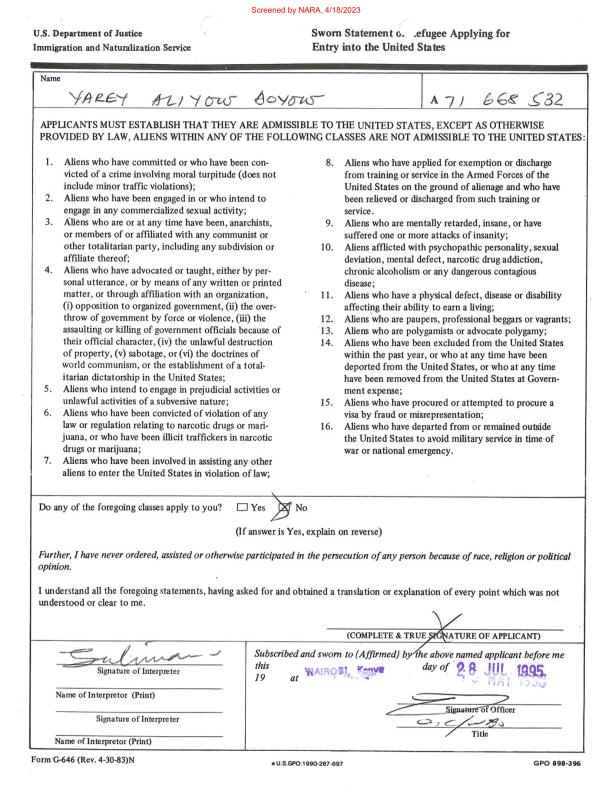 Screened by NARA, 4/18/2023
U.S. Department of Justice
Immigration and Naturalization Service
Sworn Statement o efugee Applying for
Entry into the United States
Name
YAREY ALIYOW DOYOW
A 71 668 532
APPLICANTS MUST ESTABLISH THAT THEY ARE ADMISSIBLE TO THE UNITED STATES, EXCEPT AS OTHERWISE
PROVIDED BY LAW, ALIENS WITHIN ANY OF THE FOLLOWING CLASSES ARE NOT ADMISSIBLE TO THE UNITED STATES:
1. Aliens who have committed or who have been con-
victed of a crime involving moral turpitude (does not
include minor traffic violations);
2. Aliens who have been engaged in or who intend to
engage in any commercialized sexual activity;
3. Aliens who are or at any time have been, anarchists,
or members of or affiliated with any communist or
other totalitarian party, including any subdivision or
affiliate thereof;
4. Aliens who have advocated or taught, either by per-
sonal utterance, or by means of any written or printed
matter, or through affiliation with an organization,
(i) opposition to organized government, (ii) the over-
throw of government by force or violence, (iii) the
assaulting or killing of government officials because of
their official character, (iv) the unlawful destruction
of property, (v) sabotage, or (vi) the doctrines of
world communism, or the establishment of a total-
itarian dictatorship in the United States;
5. Aliens who intend to engage in prejudicial activities or
unlawful activities of a subversive nature;
6. Aliens who have been convicted of violation of any
law or regulation relating to narcotic drugs or mari-
juana, or who have been illicit traffickers in narcotic
drugs or marijuana;
7. Aliens who have been involved in assisting any other
aliens to enter the United States in violation of law;
8. Aliens who have applied for exemption or discharge
from training or service in the Armed Forces of the
United States on the ground of alienage and who have
been relieved or discharged from such training or
service.
9. Aliens who are mentally retarded, insane, or have
suffered one or more attacks of insanity;
10. Aliens afflicted with psychopathic personality, sexual
deviation, mental defect, narcotic drug addiction,
chronic alcoholism or any dangerous contagious
disease;
11. Aliens who have a physical defect, disease or disability
affecting their ability to earn a living;
12. Aliens who are paupers, professional beggars or vagrants;
13. Aliens who are polygamists or advocate polygamy;
14. Aliens who have been excluded from the United States
within the past year, or who at any time have been
deported from the United States, or who at any time
have been removed from the United States at Govern-
ment expense;
15. Aliens who have procured or attempted to procure a
visa by fraud or misrepresentation;
16. Aliens who have departed from or remained outside
the United States to avoid military service in time of
war or national emergency.
Do any of the foregoing classes apply to you? Yes No
(If answer is Yes, explain on reverse)
Further, I have never ordered, assisted or otherwise participated in the persecution of any person because of race, religion or political
opinion.
I understand all the foregoing statements, having asked for and obtained a translation or explanation of every point which was not
understood or clear to me.
(COMPLETE & TRUE SIGNATURE OF APPLICANT)
Suliman
Signature of Interpreter
Name of Interpretor (Print)
Signature of Interpreter
Name of Interpretor (Print)
Subscribed and sworn to (Affirmed) by the above named applicant before me
this NAIROBI, Kenya day of 28 JUL 1995
19 at MAY
Signature of Officer
Title
Form G-646 (Rev. 4-30-83)N
★U.S.GPO:1990-267-697
GPO 898-396